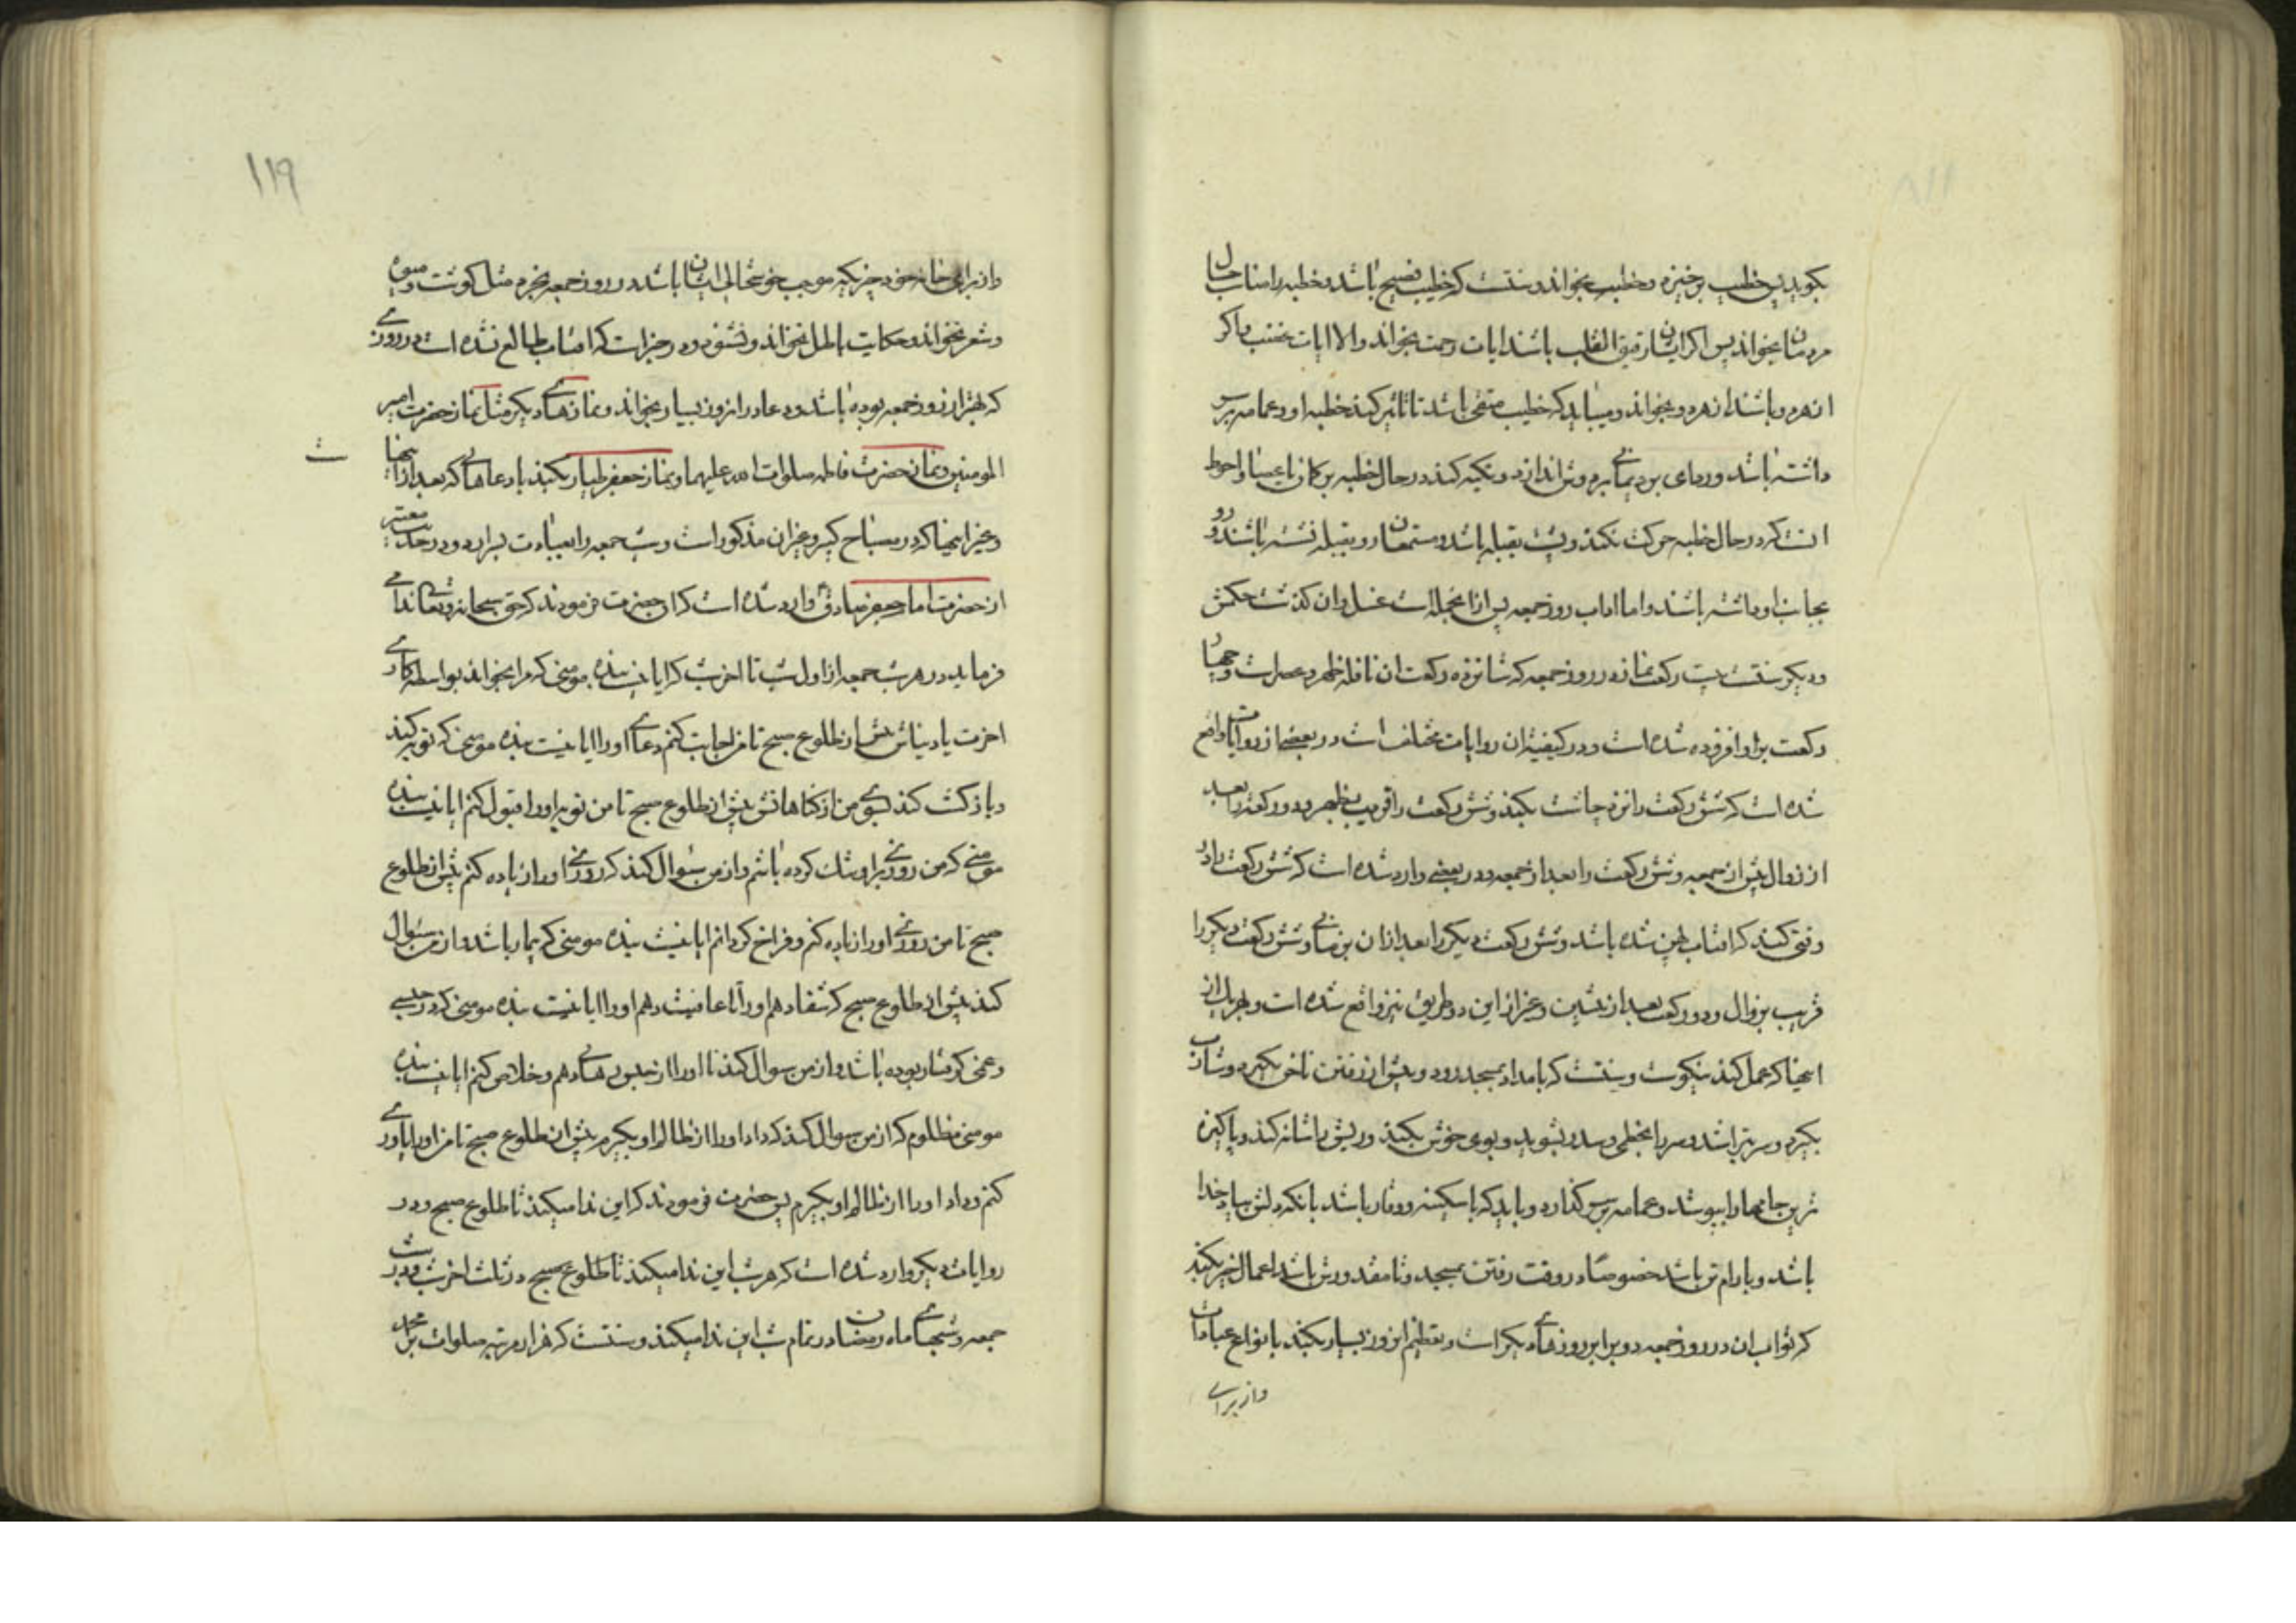 بکوید پس خطیب برخیزد و خطبه بخواند و سنتست که خطیب فصیح باشد و خطبه را مناسب حال
مردمان بخواند پس اکر ایشان رقیق القلب باشند ایات رحمت بخواند والا ایات غضب و اکر
از هردو باشند از هردو بخواند و میباید که خطیب متقی باشد تا تاثیر کند خطبه او و عمامه برسر
داشته باشد و ردای برد یمانی بردوش اندازد و تکیه کند در حال خطبه بر کمان یا عصا و احوط
انست که در حال خطبه حرکت نکند و پشت بقبله باشد و مستمعان رو بقبله نشسته باشند و رو
بجانب او داشته باشند و اما اداب روز جمعه پس از انجمله است غسل و ان کذشت حکمش
و دیکر سنتست بیست رکعت نماز در روز جمعه که شانزده رکعت ان نافله ظهر و عصر است و چهار
رکعت بر او افزوده شده است و در کیفیت ان روایات مختلف است در بعضی از روایات واقع
شده است که شش رکعت را نزد چاشت بکند و شش رکعت را قریب بظهر و دو رکعت را بعد
از زوال پیش از جمعه و شش رکعت را بعد از جمعه و در بعضی وارد شده است که شش رکعت را در
وقتی کند که افتاب پهن شده باشد و شش رکعت دیکر را بعد ازان بزمانی و شش رکعت دیکر را
قریب بزوال و دو رکعت بعد از پیشین و غیر از این دو طریق نیز واقع شده است و بهر یک از
اینها که عمل کند نیکوست و سنتست که بامداد بمسجد رود و پیش از رفتن ناخن بکیرد و شارب
بکیرد و سر بتراشد و سر را بخطمی و سدر بشوید و بوی خوش بکند و ریش را شانه کند و پاکیزه
ترین جامها را بپوشد و عمامه برسر کذارد و باید که با سکینه و وقار باشد بانکه دلش بیاد خدا
باشد و با ارام تن باشد خصوصا در وقت رفتن بمسجد و تا مقدورش باشد اعمال خیر بکند
که ثواب ان در روز جمعه دو برابر روزهای دیکر است و تعظیم این روز بسیار بکند بانواع عبادات
و از برای
۱۱۹
و از برای خانه خود چیزیکه موجب خوشحالی ایشان باشد در روز جمعه بخرد مثل کوشت و میوه
و شعر نخواند و حکایت باطل نخواند و نشنود و در خبر است که افتاب طالع نشده است در روزی
که بهتر از روز جمعه بوده باشد و دعا در این روز بسیار بخواند و نمازهای دیکر مثل نماز حضرت امیر
المومنین و نماز حضرت فاطمه صلوات الله علیهما و نماز جعفر طیار بکند با دعاهائی که بعد از اینها
وغیر اینها که در مصباح کبیر و غیر ان مذکور است و شب جمعه را بعبادت بسر ارد و در حدیث معتبر
از حضرت امام جعفر صادق ع وارد شده است که انحضرت فرمودند که حق سبحانه و تعالی ندائی
فرماید در هر شب جمعه از اول شب تا اخر شب که ایا نیست بنده مومنی که مرا بخواند بواسطه کار
اخرت یا دنیائش پیش از طلوع صبح تا من اجابت کنم دعای او را ایا نیست بنده مومنی که توبه کند
و بازکشت کند بسوی من از کناهانش پیش از طلوع صبح تا من توبه او را قبول کنم ایا نیست بنده
مومنی که من روزی بر او تنک کرده باشم و از من سؤال کند که روزی او را زیاده کنم پیش از طلوع
صبح تا من روزی او را زیاده کنم و فراخ کردانم ایا نیست بنده مومنی که بیمار باشد و از من سؤال
کند پیش از طلوع صبح که شفا دهم او را تا عافیت دهم او را ایا نیست بنده مومنی که در حبسی
و غمی کرفتار بوده باشد و از من سوال کند تا او را از حبس رهائی دهم و خلاص کنم ایا نیست بنده
مومنی مظلوم که از من سوال کند که داد او را از ظالم او بکیرم پیش از طلوع صبح تا من او را یاوری
کنم و داد او را از ظالم او بکیرم پس حضرت فرمودند که این ندا میکند تا طلوع صبح و در
روایات دیکر وارد شده است که هر شب این ندا میکند تا طلوع صبح در ثلث اخر شب و در شب
جمعه و شبهای ماه رمضان در تمام شب این ندا میکند و سنتست که هزار مرتبه صلوات بر محمد